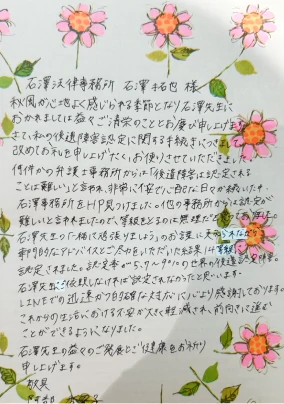 石澤法律事務所 石澤 拓也 様
秋風が心地よく感じられる季節となり石澤先生に
おかれましては益々ご清栄のこととお慶び申し上げます
さて、私の後遺障害認定に関する手続きにつきまして
改めてお礼を申し上げたく、お便りさせていただきました
何件かの弁護士事務所からは「後遺障害は認定される
ことは難しい」と言われ、非常に不安で心配な日々が続いた中、
石澤事務所をHPで見つけました。他の事務所からは認定が
難しいと言われましたので、等級をとるのは無理だと
石澤先生の「一緒に頑張りましょう」のお言葉に
専門的なアドバイスとご尽力をいただいた結果14等級
認定されました。認定率が の世界の後遺障害認定
石澤先生に依頼しなければ認定されなかったと思います。
LINEでの迅速かつ的確な対応に心より感謝しております。
これからの生活における不安が大きく軽減され、前向きに進む
ことができるようになりました。
石澤先生の益々のご発展とご健康をお祈り
申し上げます。
敬具